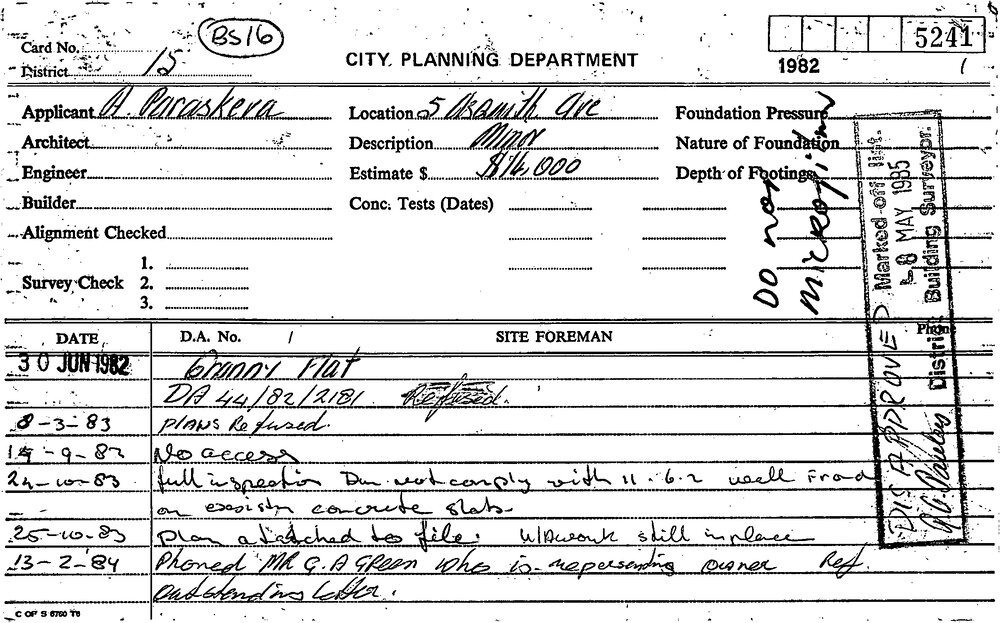 BS16
Card No.
District 15
CITY PLANNING DEPARTMENT
5241
1982 /
Applicant A. Paraskeva
Location 5 Asquith Ave
Foundation Pressure
Architect
Description Minor
Nature of Foundation
Engineer
Estimate $ $14,000
Depth of Footings
Builder
Conc. Tests (Dates)
Alignment Checked
Survey Check
1.
2.
3.
DO NOT
MICROFILM
Marked-off list.
8 MAY 1985
District Building Surveyor.
DISAPPROVED
DATE
D.A. No. /
SITE FOREMAN
Phone
30 JUN 1982 Granny Flat
DA 44/82/2181 Refused.
8-3-83 PLANS Refused.
19-9-83 No access
24-10-83 full inspection Does not comply with 11.6.2 well
on existing concrete slab
25-10-83 plan attached to file. U/A work still in place
13-2-84 Phoned MR G. A GREEN who is repersenting owner Ref.
outstanding letter.
C OF S 6760 T6